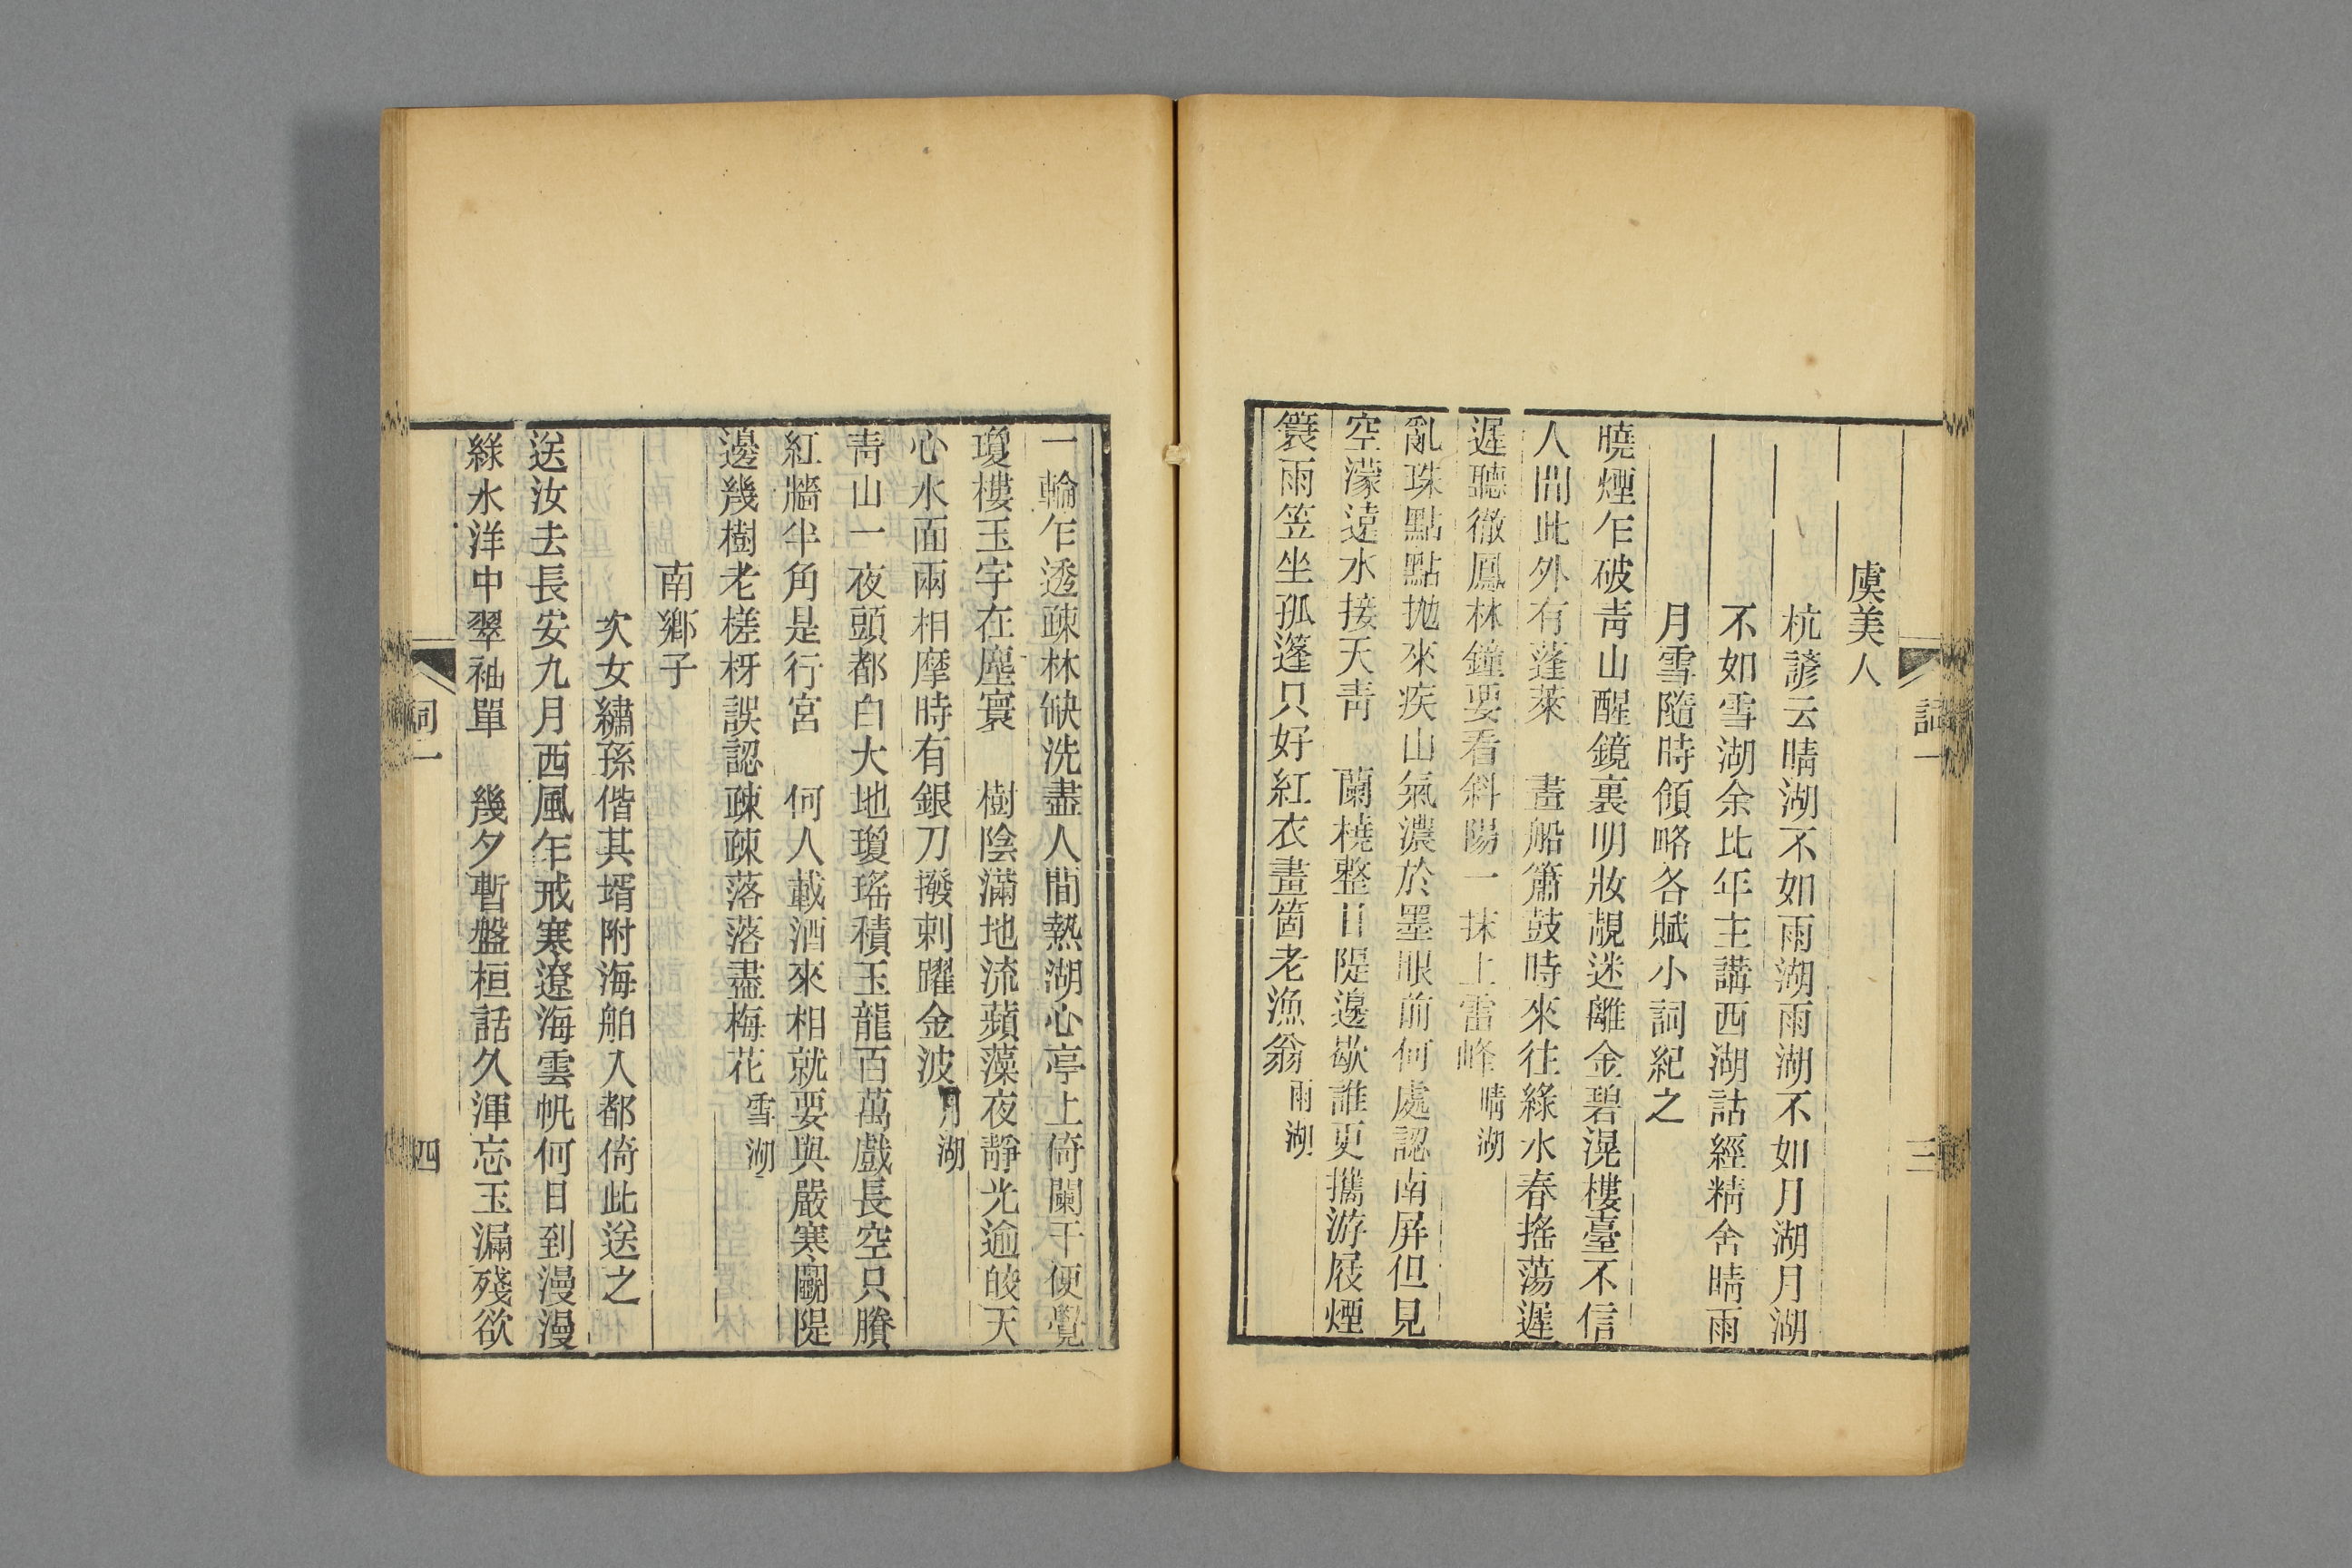 詞一
三
虞美人
杭諺云晴湖不如雨湖雨湖不如月湖月湖
不如雪湖余比年主講西湖詁經精舍晴雨
月雪隨時領略各賦小詞紀之
曉煙乍破靑山醒鏡裏明妝靚迷離金碧滉樓臺不信
人間此外有蓬萊　畫船簫鼓時來往綠水春搖蕩遲
遲聽徹鳳林鐘要看斜陽一抹上雷峰晴湖
亂珠點點拋來疾山氣濃於墨眼前何處認南屛但見
空濛遠水接天靑　蘭橈整日隄邊歇誰更攜游屐煙
簑雨笠坐孤篷只好紅衣畫箇老漁翁雨湖
一輪乍透疎林缺洗盡人間熱湖心亭上倚闌干便覺
瓊樓玉宇在塵寰　樹陰滿地流蘋藻夜靜光逾皎天
心水面兩相摩時有銀刀撥剌躍金波月湖
靑山一夜頭都白大地瓊瑤積玉龍百萬戲長空只賸
紅牆半角是行宮　何人載酒來相就要與嚴寒鬬隄
邊幾樹老槎枒誤認疎疎落落盡梅花雪湖
南鄉子
次女繡孫偕其壻附海舶入都倚此送之
送汝去長安九月西風乍戒寒遼海雲帆何日到漫漫
綠水洋中翠袖單　幾夕暫盤桓話久渾忘玉漏殘欲
詞一
四